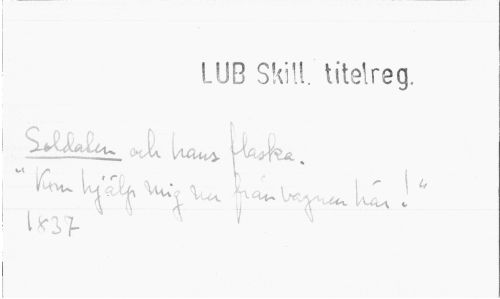 LUB Skill. titelreg.
Soldaten och hans flaska.
"Kom hjälp mig ner från vagnen här!"
1837